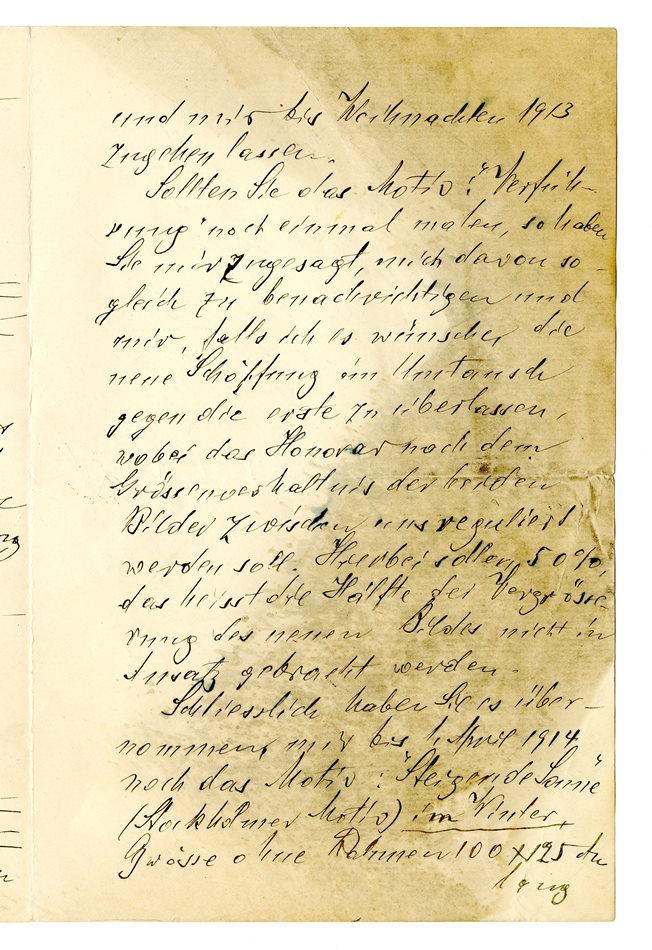 und mir bis Weihnachten 1913
zugehen lassen.
Sollten Sie das Motiv: "Verfüh-
rung" noch einmal malen, so haben
Sie mir zugesagt, mich davon so-
gleich zu benachrichtigen und
mir, falls ich es wünsche, die
neue Schöpfung im Umtausch
gegen die erste zu überlassen,
wobei das Honorar nach dem
Grössenverhältnis der beiden
Bilder zwischen uns reguliert
werden soll. Hierbei sollen 50%,
das heisst die Hälfte der Vergrösse-
rung des neuen Bildes nicht in
Ansatz gebracht werden.
Schliesslich haben Sie es über-
nommen, mir bis 1. April 1914
noch das Motiv: "Steigende Sonne"
(Stockholmer Motiv) im Winter,
Grösse ohne Rahmen 100 x 125